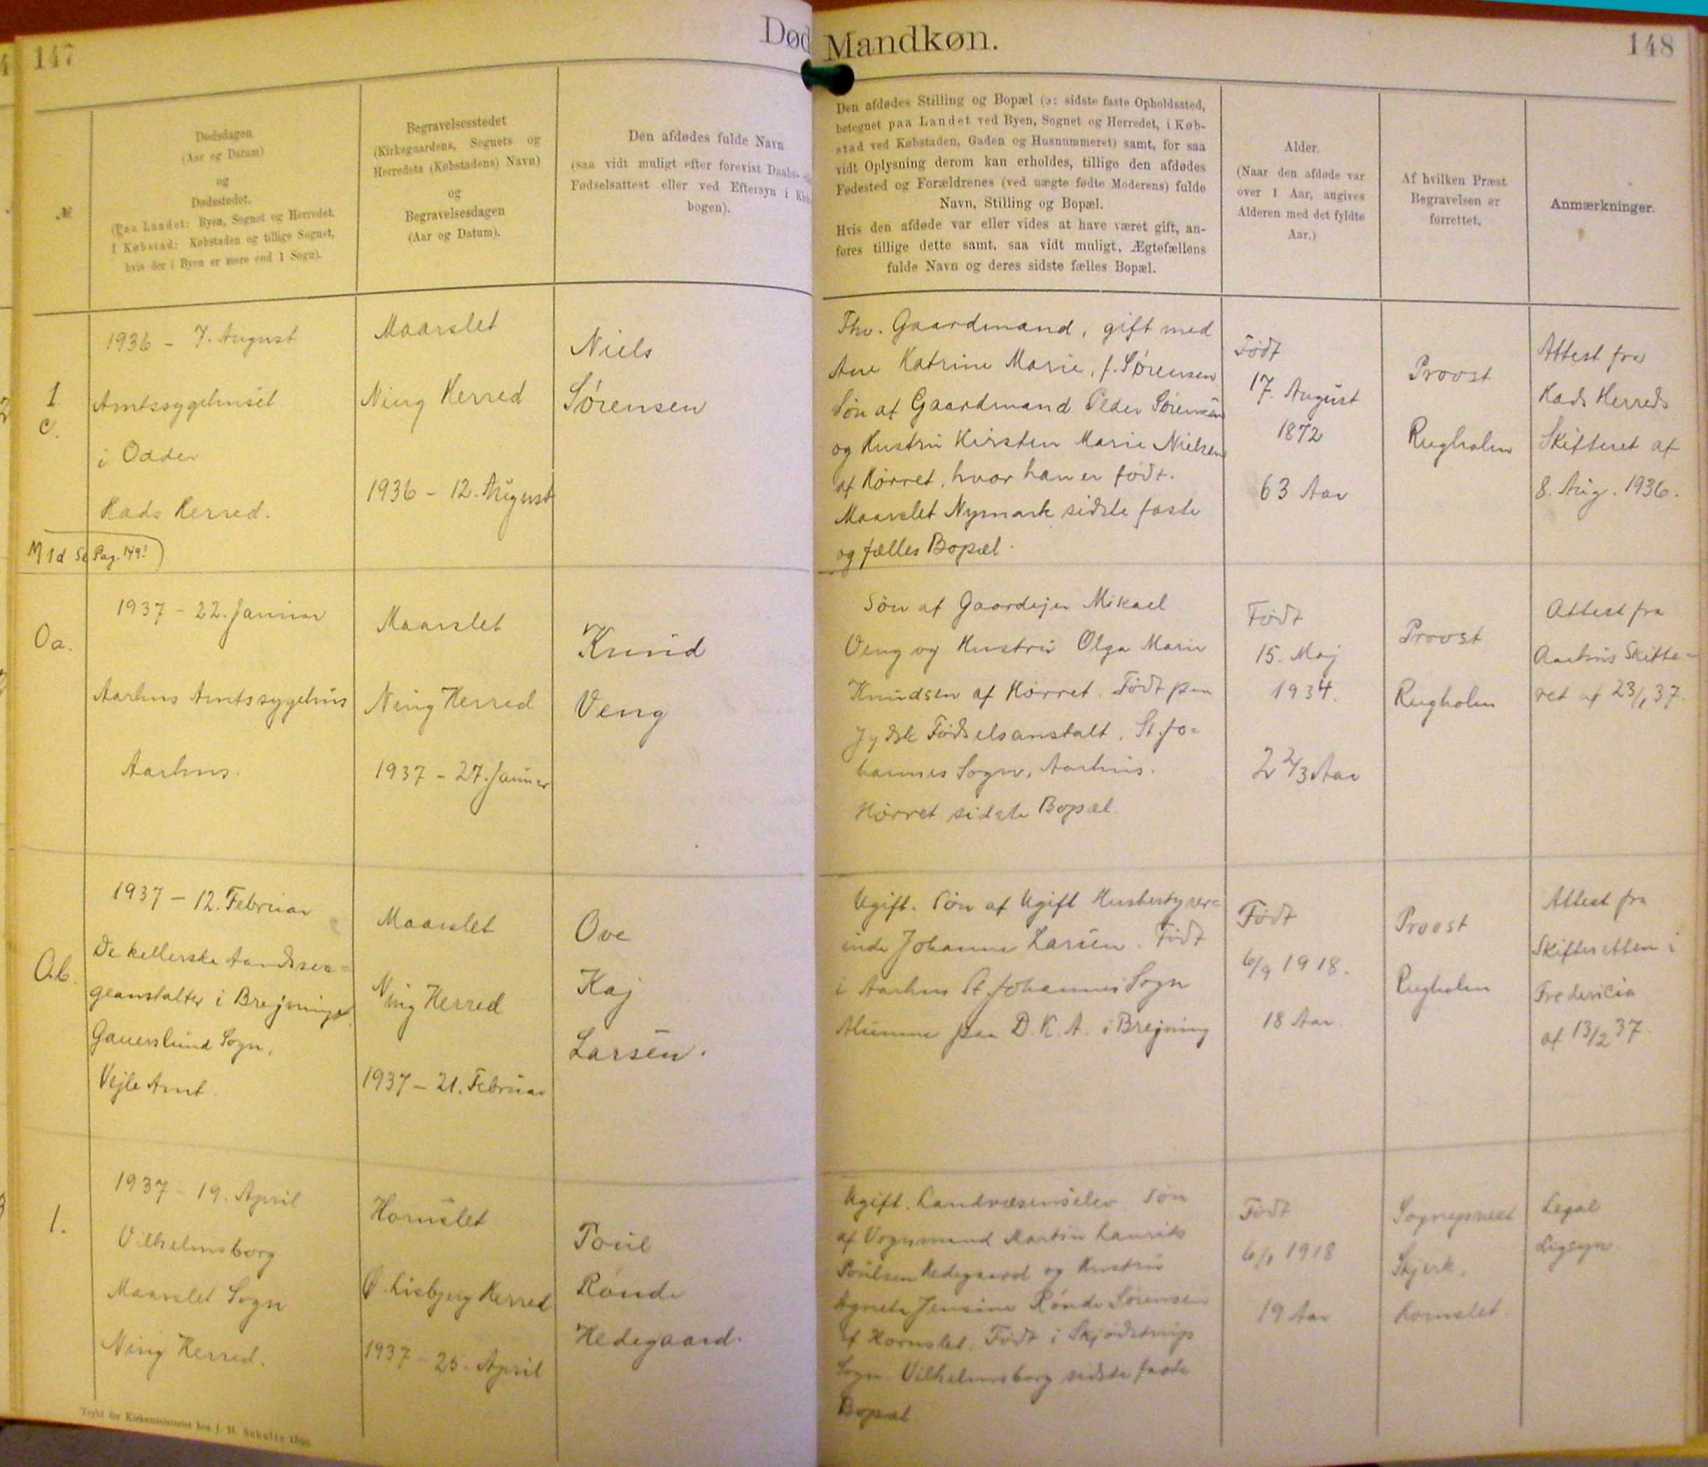 147
Død
Mandkøn.
148
№
Dødsdagen
(Aar og Datum)
og
Dødsstedet.
(Paa Landet: Byen, Sognet og Herredet,
I Købstad: Købstaden og tillige Sognet,
hvis der i Byen er mere end 1 Sogn).
Begravelsesstedet
(Kirkegaardens, Sognets og
Herredets (Købstadens) Navn)
og
Begravelsesdagen
(Aar og Datum).
Den afdødes fulde Navn
(saa vidt muligt efter forevist Daabs-
Fødselsattest eller ved Eftersyn i
bogen).
Den afdødes Stilling og Bopæl (ɔ: sidste faste Opholdssted,
betegnet paa Landet ved Byen, Sognet og Herredet, i Køb-
stad ved Købstaden, Gaden og Husnummeret) samt, for saa
vidt Oplysning derom kan erholdes, tillige den afdødes
Fødested og Forældrenes (ved uægte fødte Moderens) fulde
Navn, Stilling og Bopæl.
Hvis den afdøde var eller vides at have været gift, an-
føres tillige dette samt, saa vidt muligt, Ægtefællens
fulde Navn og deres sidste fælles Bopæl.
Alder.
(Naar den afdøde var
over 1 Aar, angives
Alderen med det fyldte
Aar.)
Af hvilken Præst
Begravelsen er
forrettet.
Anmærkninger.
1
c.
1936 - 7. August
Amtssygehuset
i Odder
Hads Herred.
Maarslet
Ning Herred
1936 - 12. August
Niels
Sörensen
Fhv. Gaardmand, gift med
Ane Katrine Marie, f. Sørensen
Søn af Gaardmand Peder Sørensen
og Hustru Kirsten Marie Nielsen
af Hørret, hvor han er født.
Maarslet Nymark sidste faste
og fælles Bopæl.
Født
17. August
1872
63 Aar
Provst
Rugholm
Attest fra
Hads Herreds
Skifteret af
8. Aug. 1936.
1d Se Pag. 149!
0a.
1937 - 22. Januar
Aarhus Amtssygehus
Aarhus.
Maarslet
Ning Herred
1937 - 27. Januar
Knud
Veng
Søn af Gaardejer Mikael
Veng og Hustru Olga Marie
Knudsen af Hørret. Født paa
Jydsk Fødselsanstalt. St. Jo=
hannes Sogn, Aarhus.
Hørret sidste Bopæl
Født
15. Maj
1934.
2 2/3 Aar
Provst
Rugholm
Attest fra
Aarhus Skifte=
ret af 23/1 37.
0b.
1937 - 12. Februar
De kellerske Aandssva=
geanstalter i Brejning
Gauerslund Sogn,
Vejle Amt.
Maarslet
Ning Herred
1937 - 21. Februar
Ove
Kaj
Larsen.
Ugift. Søn af Ugift Husbestyrer=
inde Johanne Larsen. Født
i Aarhus St. Johannes Sogn
Alumne paa D. K. A. i Brejning
Født
6/9 1918.
18 Aar
Provst
Rugholm
Attest fra
Skifteretten i
Fredericia
af 13/2 37.
1.
1937 - 19. April
Vilhelmsborg
Maarslet Sogn
Ning Herred.
Hornslet
Ø. Lisbjerg Herred
1937 - 25. April
Poul
Rønde
Hedegaard.
Ugift. Landvæsenselev Søn
af Vognmand Martin Laurits
Poulsen Hedegaard og Hustru
Agnete Jensine Rønde Sørensen
af Hornslet. Født i Skjødstrup
Sogn. Vilhelmsborg sidste faste
Bopæl
Født
1918
19 Aar
Sognepræst
Skjerk.
Hornslet
Legal
Ligsyn.
Trykt for Kirkeministeriet hos J. H. Schultz